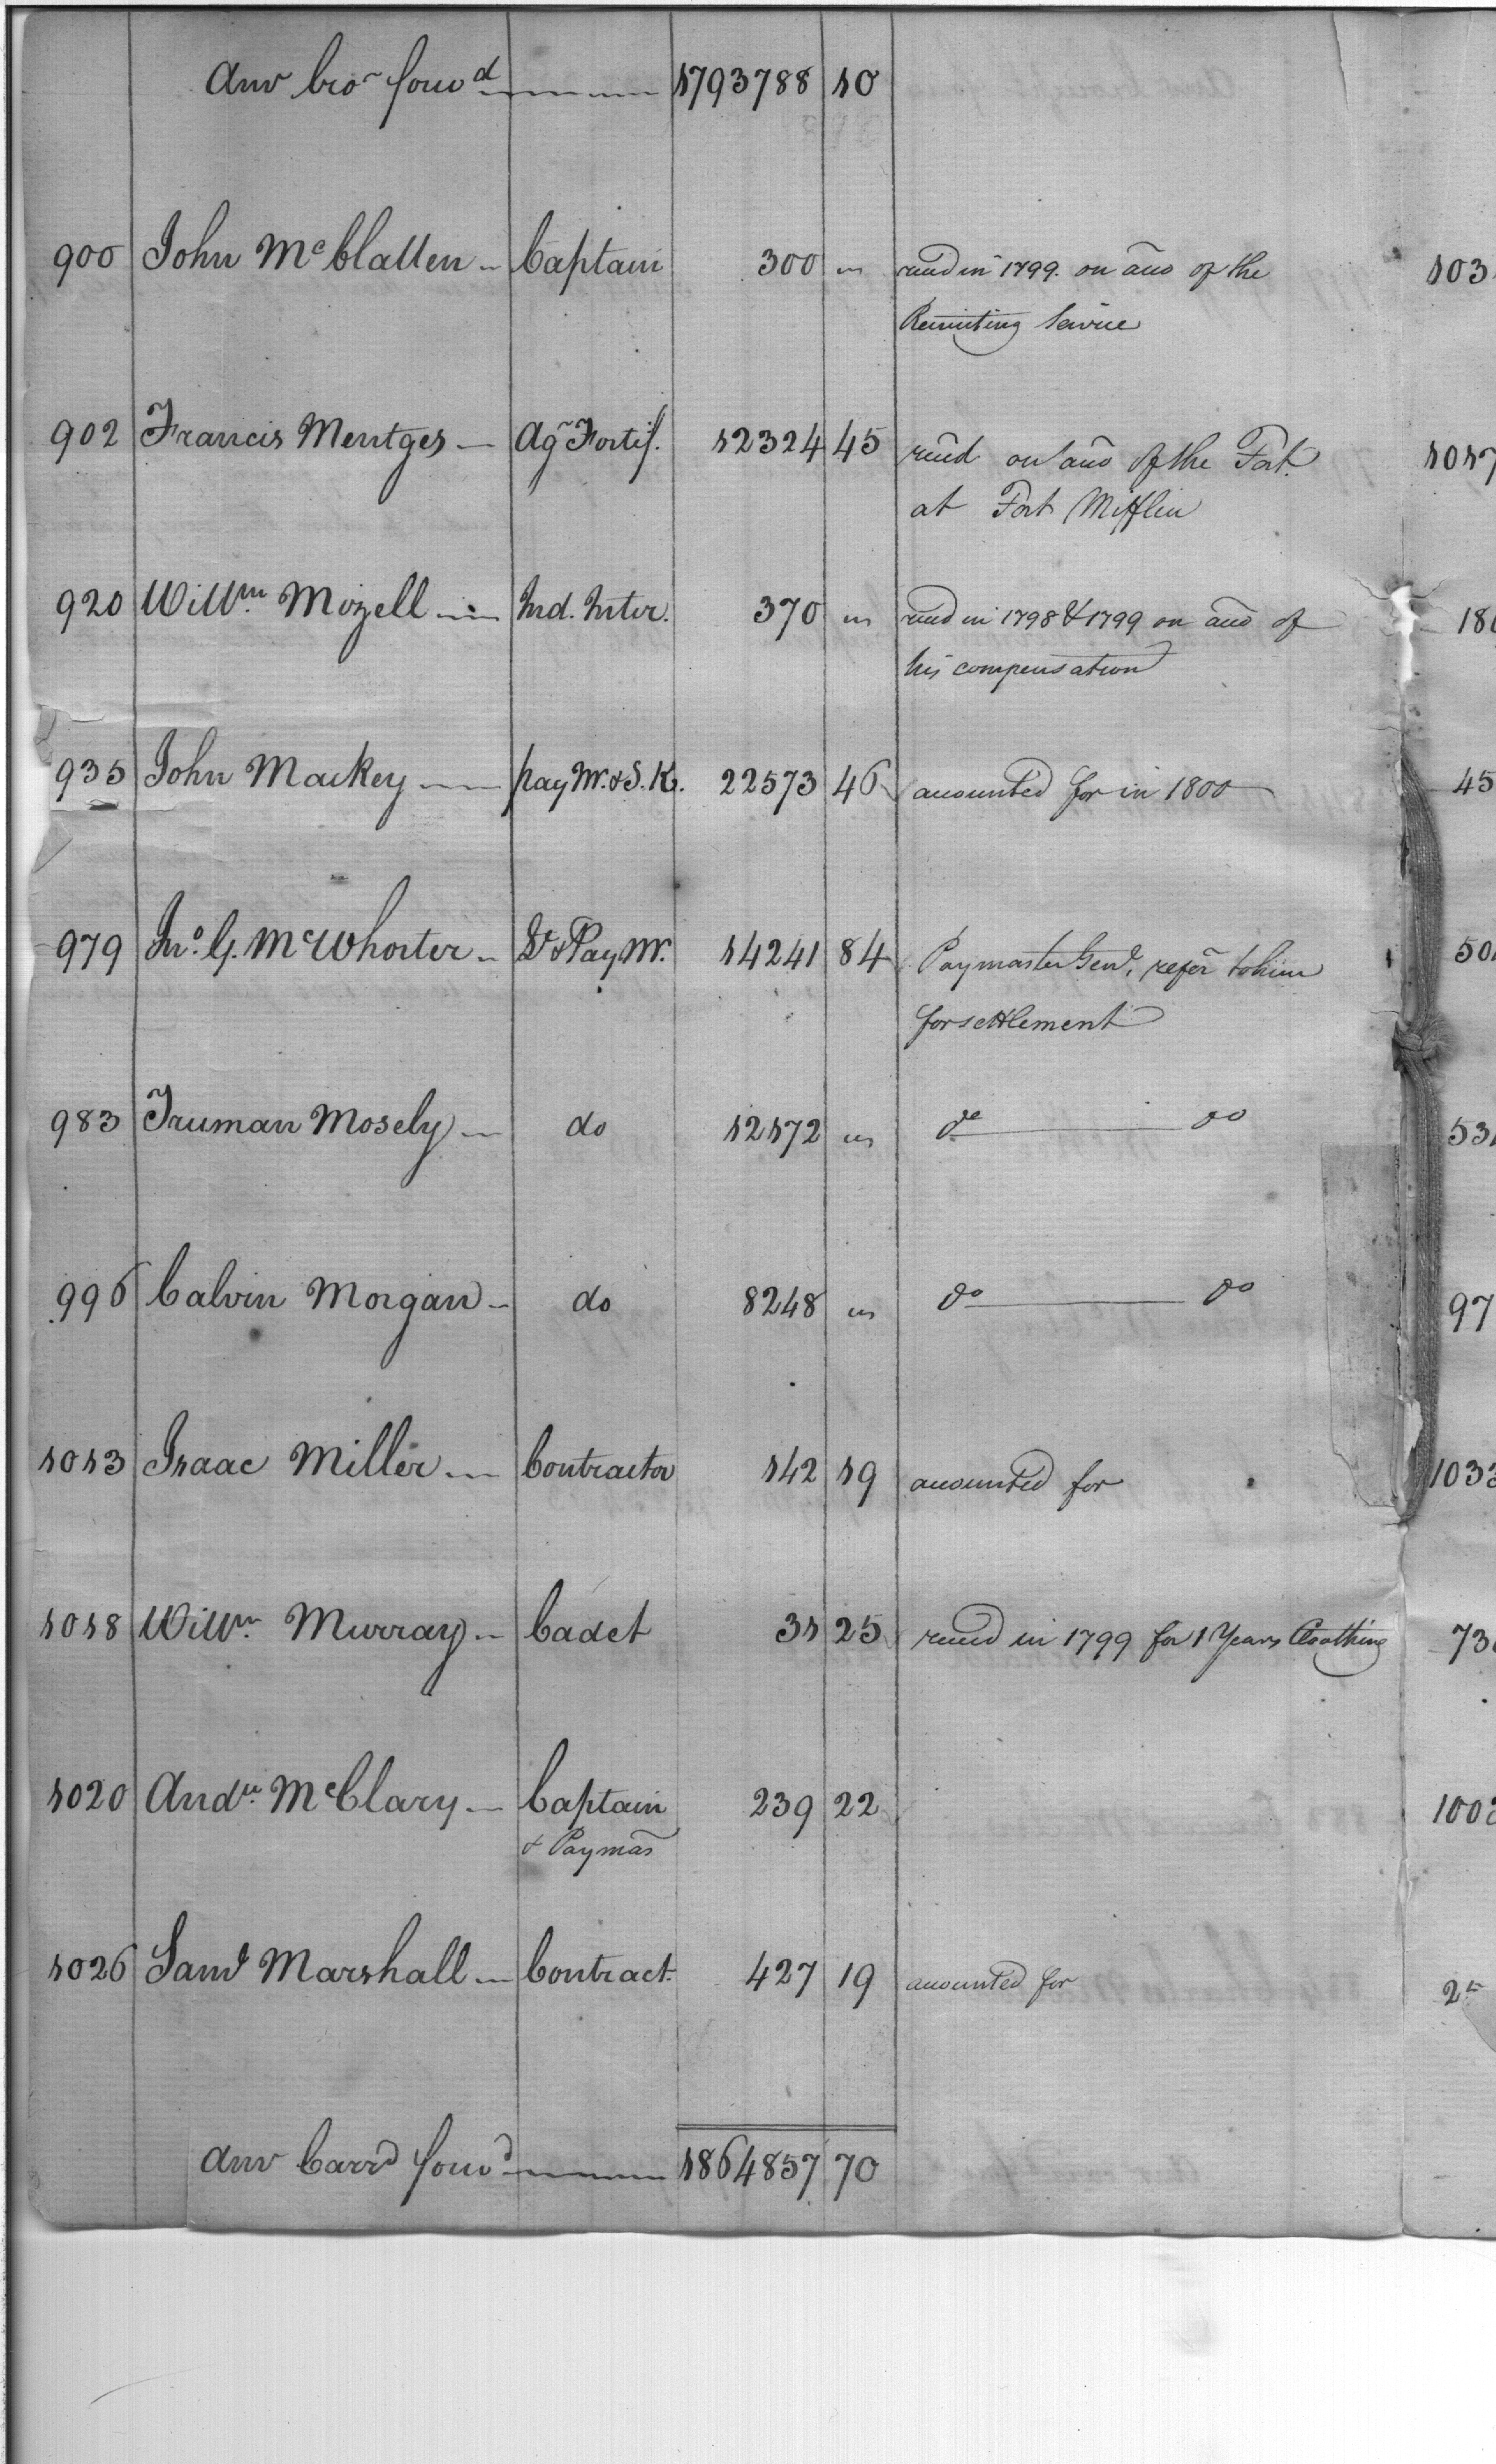 Amt bro~ forwd 1793788 10
900 John McClallen Captain 300 " recd in 1799. on acco of the
Recruiting Service
902 Francis Mentges Ag~ Fortif. 12324 45 recd on acco of the Fort.
at Fort Mifflin
920 Willm Mozell Ind. Inter. 370 " recd in 1798 & 1799 on acco of
his compensation
935 John Mackey pay M. & S. K. 22573 46 accounted for in 1800
979 Jno. G. McWhorter Lt & Pay M. 14241 84 Paymaster Genl. refer to him
for settlement
983 Truman Mosely do 12172 " do do
996 Calvin Morgan do 8248 " do do
1013 Isaac Miller Contractor 142 19 accounted for
1018 Willm Murray Cadet 31 25 recd in 1799 for 1 Years Cloathing
1020 Andw McClary Captain 239 22
& Paymas
1026 Saml Marshall Contract. 427 19 accounted for
Amt Carrd forwd 1864857 70
103
1017
18
45
50
53
97
1033
73
100
2